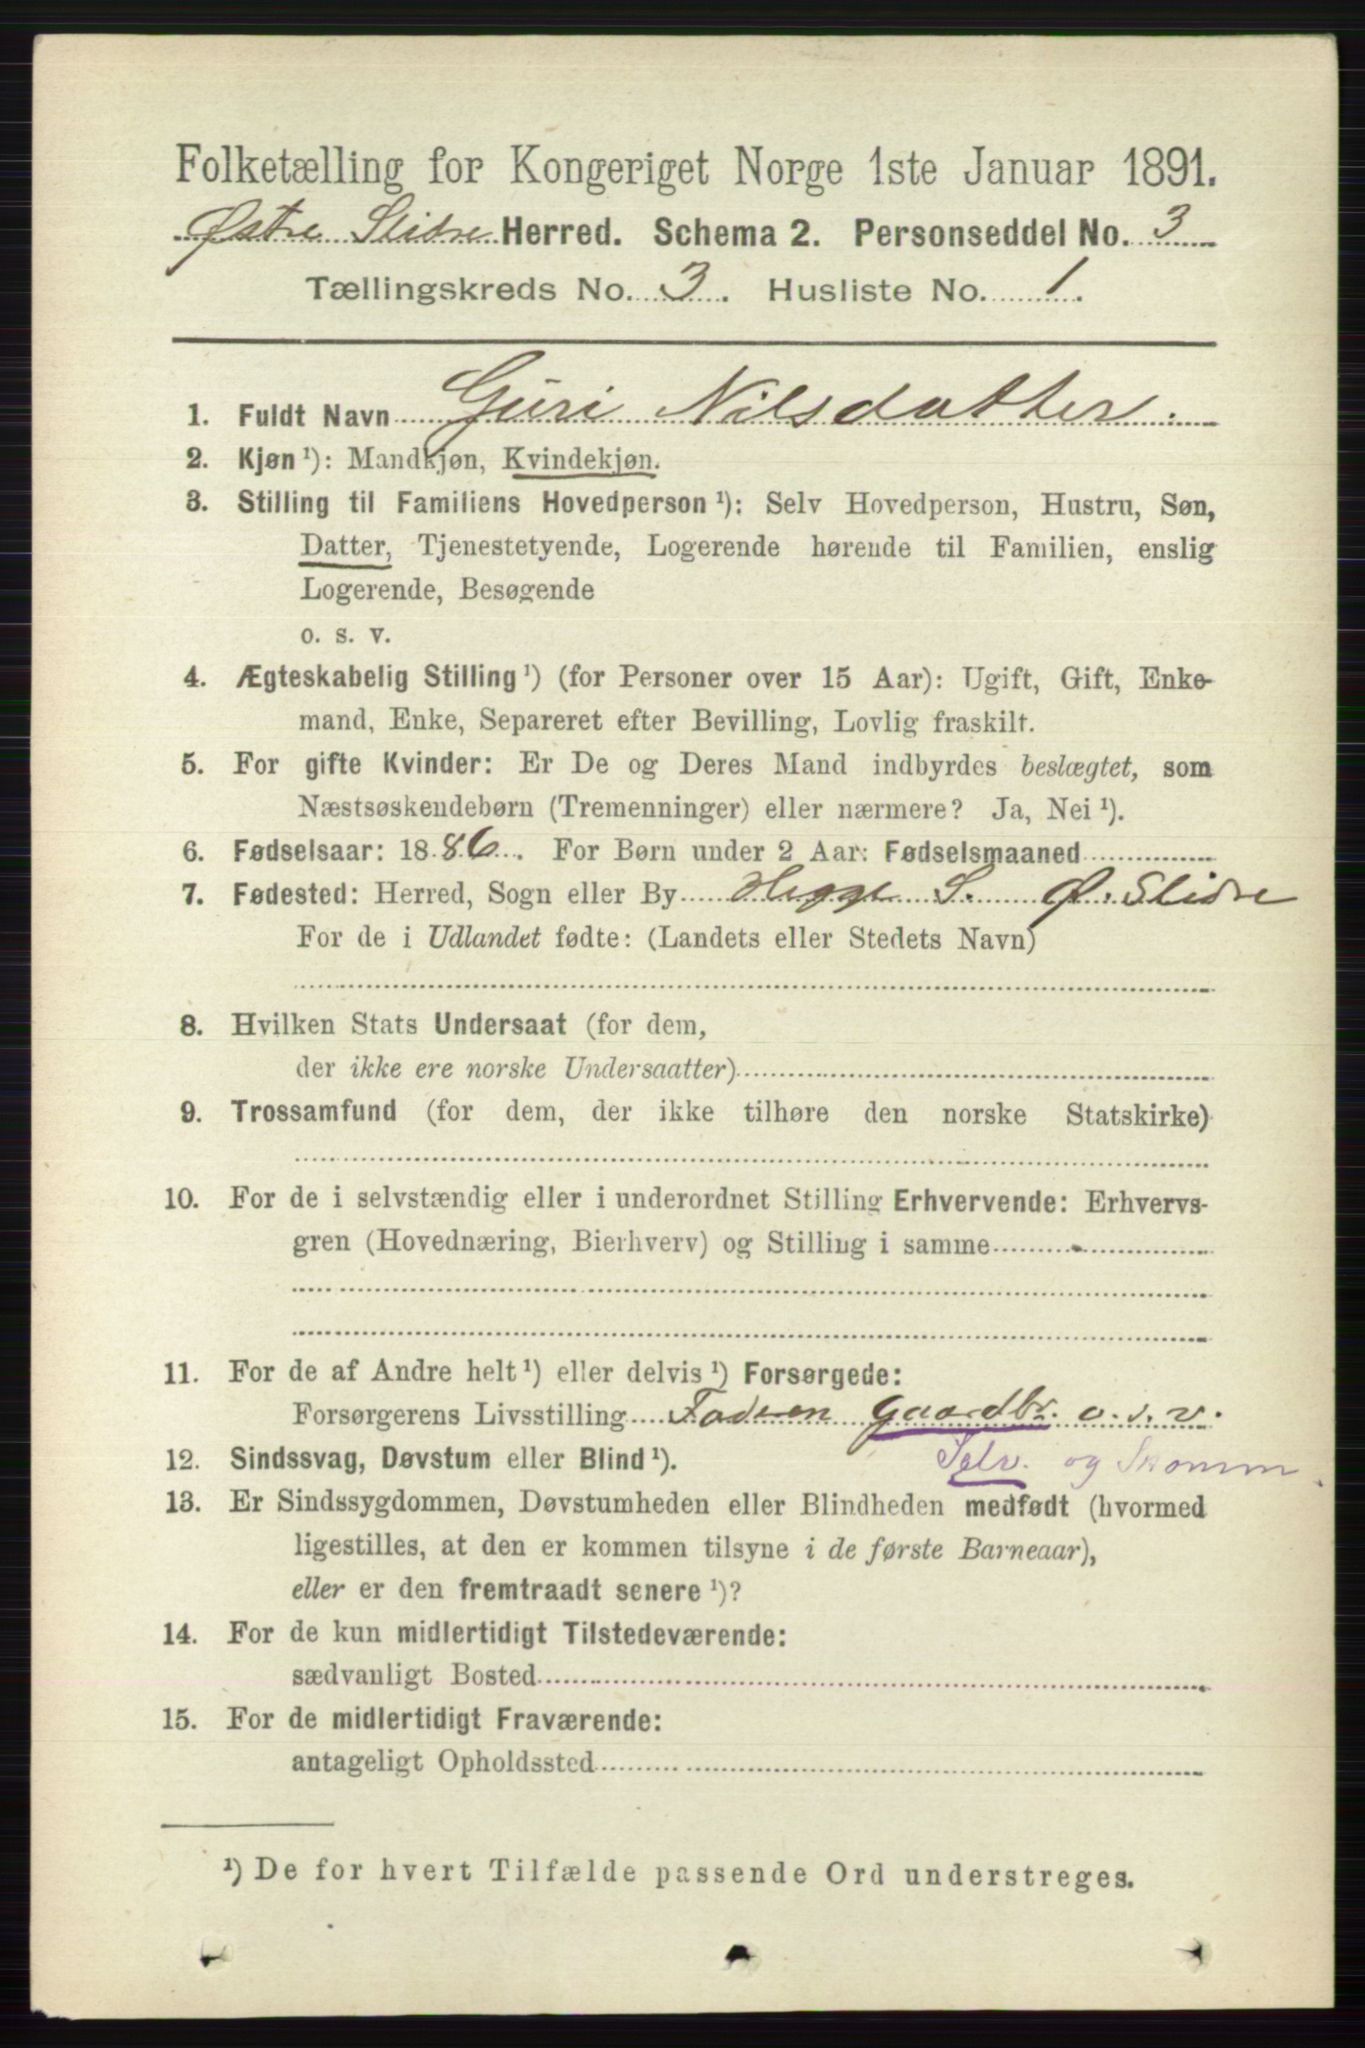 Folketælling for Kongeriget Norge 1ste Januar 1891.
Østre Slidre Herred. Schema 2. Personseddel No. 3
Tællingskreds No. 3. Husliste No. 1.
1. Fuldt Navn Guri Nilsdatter.
2. Kjøn ¹): Mandkjøn, Kvindekjøn.
3. Stilling til Familiens Hovedperson ¹): Selv Hovedperson, Hustru, Søn,
Datter, Tjenestetyende, Logerende hørende til Familien, enslig
Logerende, Besøgende
o. s. v.
4. Ægteskabelig Stilling ¹) (for Personer over 15 Aar): Ugift, Gift, Enke-
mand, Enke, Separeret efter Bevilling, Lovlig fraskilt.
5. For gifte Kvinder: Er De og Deres Mand indbyrdes beslægtet, som
Næstsøskendebørn (Tremenninger) eller nærmere? Ja, Nei ¹).
6. Fødselsaar: 1886. For Børn under 2 Aar: Fødselsmaaned
7. Fødested: Herred, Sogn eller By Hegge S. Ø. Slidre
For de i Udlandet fødte: (Landets eller Stedets Navn)
8. Hvilken Stats Undersaat (for dem,
der ikke ere norske Undersaatter)
9. Trossamfund (for dem, der ikke tilhøre den norske Statskirke)
10. For de i selvstændig eller i underordnet Stilling Erhvervende: Erhvervs-
gren (Hovednæring, Bierhverv) og Stilling i samme -
11. For de af Andre helt ¹) eller delvis ¹) Forsørgede:
Forsørgerens Livsstilling Faderen Gaardbr. o. s. v.
12. Sindssvag, Døvstum eller Blind ¹). Selv. og Skomm.
13. Er Sindssygdommen, Døvstumheden eller Blindheden medfødt (hvormed
ligestilles, at den er kommen tilsyne i de første Barneaar),
eller er den fremtraadt senere ¹)?
14. For de kun midlertidigt Tilstedeværende:
sædvanligt Bosted
15. For de midlertidigt Fraværende:
antageligt Opholdssted
¹) De for hvert Tilfælde passende Ord understreges.